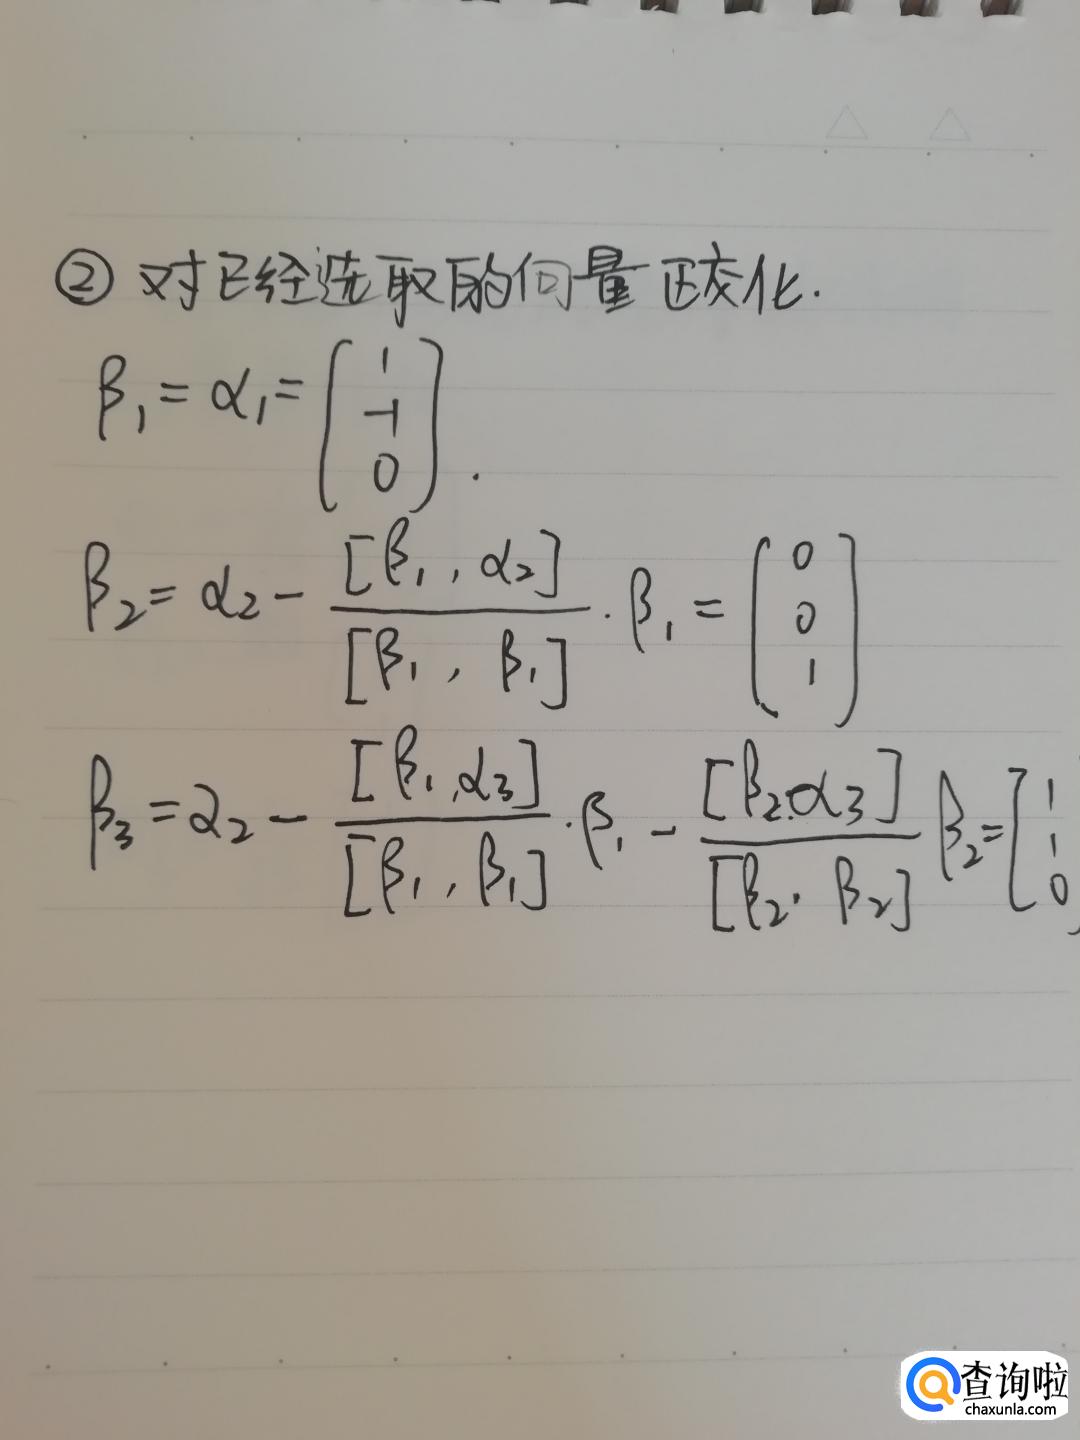 ② 对已经选取的向量正交化.
β₁ = α₁ = (1 -1 0).
β₂ = α₂ - [β₁, α₂] / [β₁, β₁] · β₁ = (0 0 1)
β₃ = α₂ - [β₁, α₃] / [β₁, β₁] · β₁ - [β₂, α₃] / [β₂, β₂] β₂ = [1 1 0)
查询啦
chaxunla.com